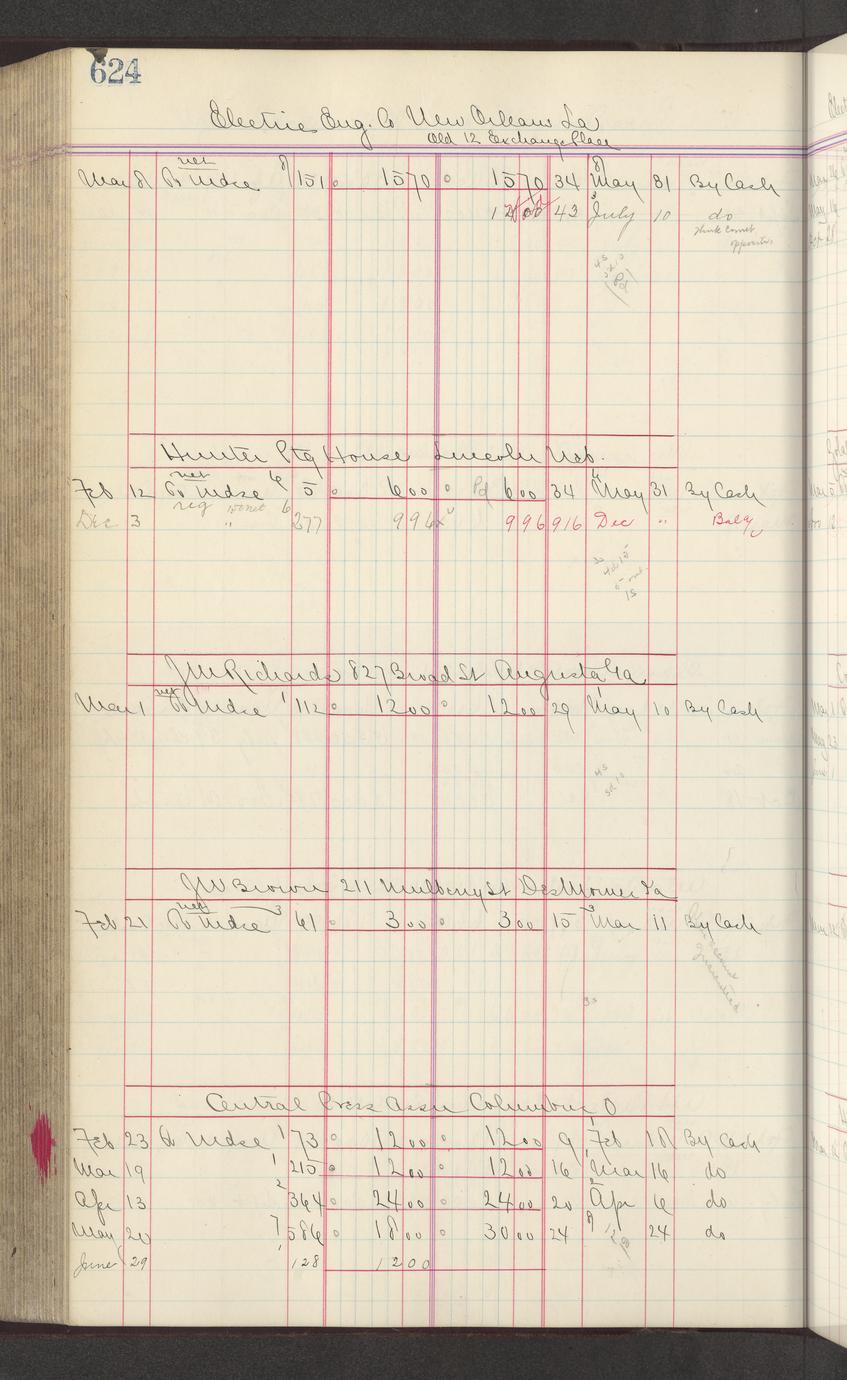 624
Electric Eng. Co New Orleans La
Old 12 Exchange Place
net
Mar 8 To Mdse 8 151 15 70 15 70 34 8 May 31 By Cash
12 00 43 3 July 10 do
think comes
opposite
(Pd)
Hunter Ptg House Lincoln Neb.
net
Feb 12 To Mdse 6 5 6 00 Pd 6 00 34 May 31 By Cash
Dec 3 " 6 277 9 96 9 96 916 Dec " Baly
J M Richards 827 Broad St Augusta Ga
net
Mar 1 To Mdse 1 112 12 00 12 00 29 1 May 10 By Cash
J W Brown 211 Mulberry St Des Moines Ia
net
Feb 21 To Mdse 3 61 3 00 3 00 15 3 Mar 11 By Cash
guaranteed
30
Central Press Assn Columbus O
Feb 23 To Mdse 1 73 12 00 12 00 9 1 Feb 18 By Cash
Mar 19 1 215 12 00 12 00 16 1 Mar 16 do
Apr 13 2 364 24 00 24 00 20 2 Apr 6 do
May 20 7 586 18 00 30 00 24 24 do
June 29 1 128 12 00